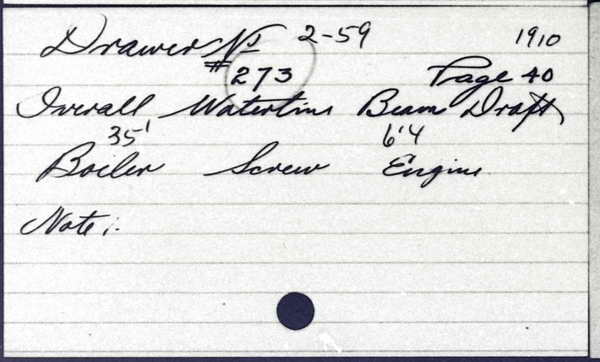 Drawer No 2-59 1910
#273 Page 40
Overall Waterline Beam Draft
35' 6'4
Boiler Screw Engine
Note:-